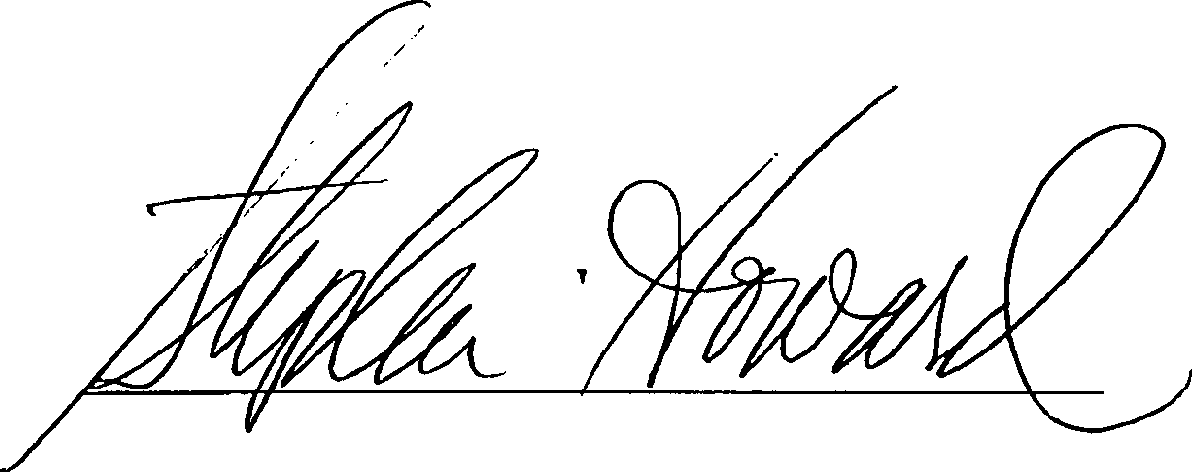 Stephen Howard